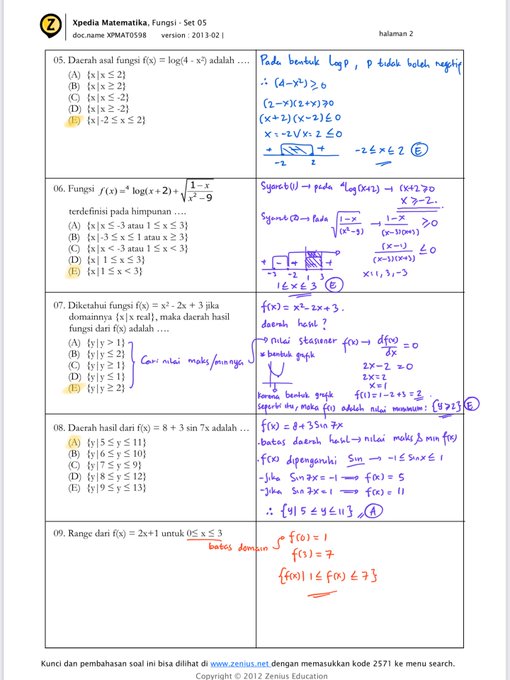 Xpedia Matematika, Fungsi - Set 05
doc.name XPMAT0598 version : 2013-02 |
halaman 2
05. Daerah asal fungsi f(x) = log(4 - x²) adalah ….
(A) {x|x ≤ 2}
(B) {x|x ≥ 2}
(C) {x|x ≤ -2}
(D) {x|x ≥ -2}
(E) {x|-2 ≤ x ≤ 2}
Pada bentuk log p, p tidak boleh negatip
∴ (4-x²) ≥ 0
(2-x)(2+x) ≥ 0
(x+2)(x-2) ≤ 0
x = -2 ∨ x = 2 ≤ 0
+ - +
-2 2
-2 ≤ x ≤ 2 (E)
06. Fungsi f(x) = ⁴log(x+2) + √((1-x)/(x²-9))
terdefinisi pada himpunan ….
(A) {x|x ≤ -3 atau 1 ≤ x ≤ 3}
(B) {x|-3 ≤ x ≤ 1 atau x ≥ 3}
(C) {x|x < -3 atau 1 ≤ x < 3}
(D) {x| 1 ≤ x ≤ 3}
(E) {x|1 ≤ x < 3}
Syarat (1) → pada ⁴log(x+2) → (x+2) ≥ 0
x ≥ -2.
Syarat (2) → Pada √((1-x)/(x²-9)) → (1-x)/((x-3)(x+3)) ≥ 0
(x-1)/((x-3)(x+3)) ≤ 0
x = 1, 3, -3
+ - + +
-3 -2 1 3
1 ≤ x ≤ 3 (E)
07. Diketahui fungsi f(x) = x² - 2x + 3 jika
domainnya {x|x real}, maka daerah hasil
fungsi dari f(x) adalah ….
(A) {y|y > 1}
(B) {y|y ≤ 2}
(C) {y|y ≥ 1}
(D) {y|y ≤ 1}
(E) {y|y ≥ 2}
Cari nilai maks/minnya
f(x) = x²-2x+3.
daerah hasil?
• nilai stasioner f(x) → df(x)/dx = 0
* bentuk grafik
2x - 2 = 0
2x = 2
x = 1
karena bentuk grafik f(1) = 1-2+3 = 2.
seperti itu, maka f(1) adalah nilai minimum: {y ≥ 2} (E)
08. Daerah hasil dari f(x) = 8 + 3 sin 7x adalah …
(A) {y|5 ≤ y ≤ 11}
(B) {y|6 ≤ y ≤ 10}
(C) {y|7 ≤ y ≤ 9}
(D) {y|8 ≤ y ≤ 12}
(E) {y|9 ≤ y ≤ 13}
f(x) = 8 + 3 Sin 7x
• batas daerah hasil → nilai maks & min f(x)
• f(x) dipengaruhi Sin → -1 ≤ Sin x ≤ 1
- Jika Sin 7x = -1 ⟹ f(x) = 5
- Jika Sin 7x = 1 ⟹ f(x) = 11
∴ {y| 5 ≤ y ≤ 11} (A)
09. Range dari f(x) = 2x+1 untuk 0≤ x ≤ 3
batas domain
f(0) = 1
f(3) = 7
{f(x)| 1 ≤ f(x) ≤ 7}
Kunci dan pembahasan soal ini bisa dilihat di www.zenius.net dengan memasukkan kode 2571 ke menu search.
Copyright © 2012 Zenius Education